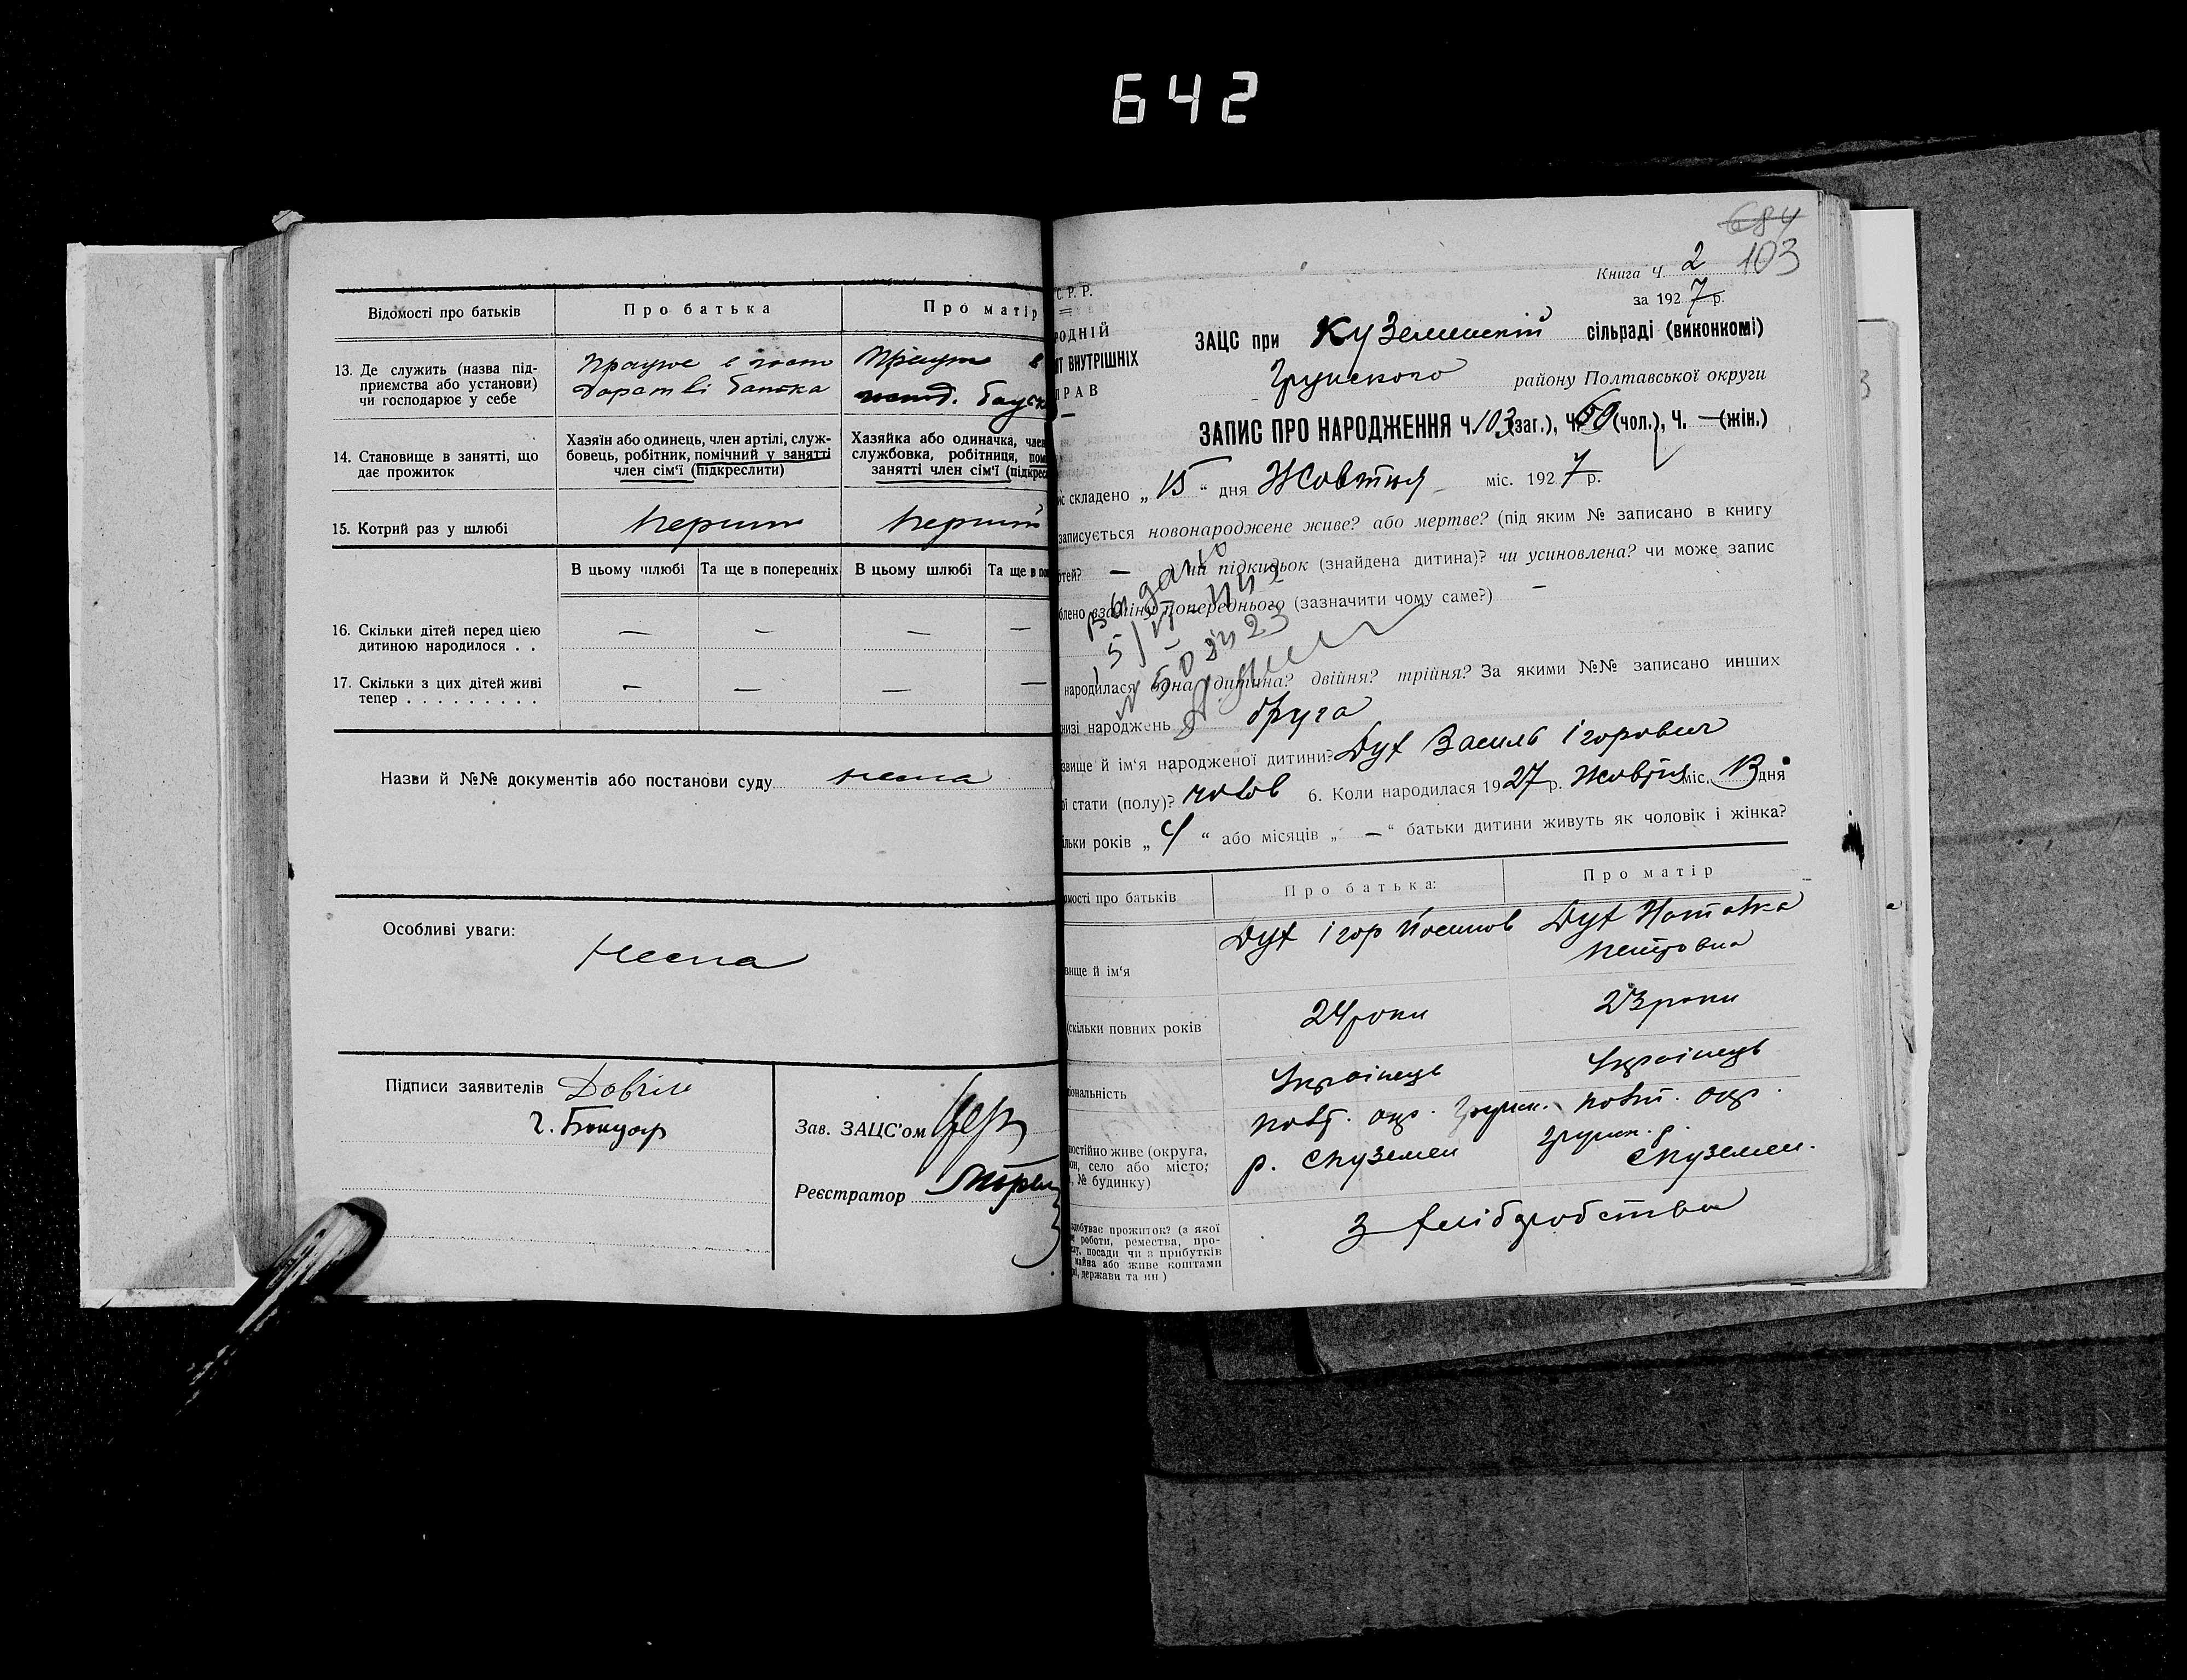 642
Відомості про батьків
Про батька
Про матір
13. Де служить (назва під-
приємства або установи)
чи господарює у себе
Працює в госп
дарстві батька
Працює в
госпд.
14. Становище в занятті, що
дає прожиток
Хазяїн або одинець, член артілі, служ-
бовець, робітник, помічний у занятті
член сім'ї (підкреслити)
Хазяйка або одиначка, член
службовка, робітниця, пом
занятті член сім'ї (підкрес
15. Котрий раз у шлюбі
перший
перший
В цьому шлюбі
Та ще в попередніх
В цьому шлюбі
Та ще в по
16. Скільки дітей перед цією
дитиною народилося . .
— — — —
17. Скільки з цих дітей живі
тепер . . . . . . . . .
— — — —
Назви й №№ документів або постанови суду нема
Особливі уваги:
Нема
Підписи заявителів
Г. Бондар
Зав. ЗАЦС'ом
Реєстратор
684
103
Книга Ч. 2
за 1927 р.
С. Р. Р.
РОДНІЙ
АТ ВНУТРІШНІХ
ПРАВ
ЗАЦС при Куземенскій сільраді (виконкомі)
Грунского району Полтавської округи
ЗАПИС ПРО НАРОДЖЕННЯ Ч. 103 (заг.), Ч. 50 (чол.), Ч. — (жін.)
складено „15“ дня Жовтня міс. 1927 р.
записується новонароджене живе? або мертве? (під яким № записано в книгу
ртей? — чи підкидьок (знайдена дитина)? чи усиновлена? чи може запис
блено взамін попереднього (зазначити чому саме?) —
видано
народилася одна дитина? двійня? трійня? За якими №№ записано инших
низі народжень друга
звище й ім'я народженої дитини? Дух Василь Ігорович
ої стати (полу)? чолов 6. Коли народилася 1927 р. Жовтня міс. 13 дня
льки років „4“ або місяців „—“ батьки дитини живуть як чоловік і жінка?
омості про батьків
Про батька:
Про матір
вище й ім'я
Дух Ігор Йосипов
Дух Наталка
Петровна
(скільки повних років
24 роки
23 роки
ціональність
Українець
Українець
постійно живе (округа,
он, село або місто,
, № будинку)
Полт. окр. Грунск.
р. с Куземен
Полт. окр.
Грунск. р.
с Куземен.
здобуває прожиток? (з якої
роботи, ремества, про-
у, посади чи з прибутків
майна або живе коштами
, держави та ин)
з хліборобства